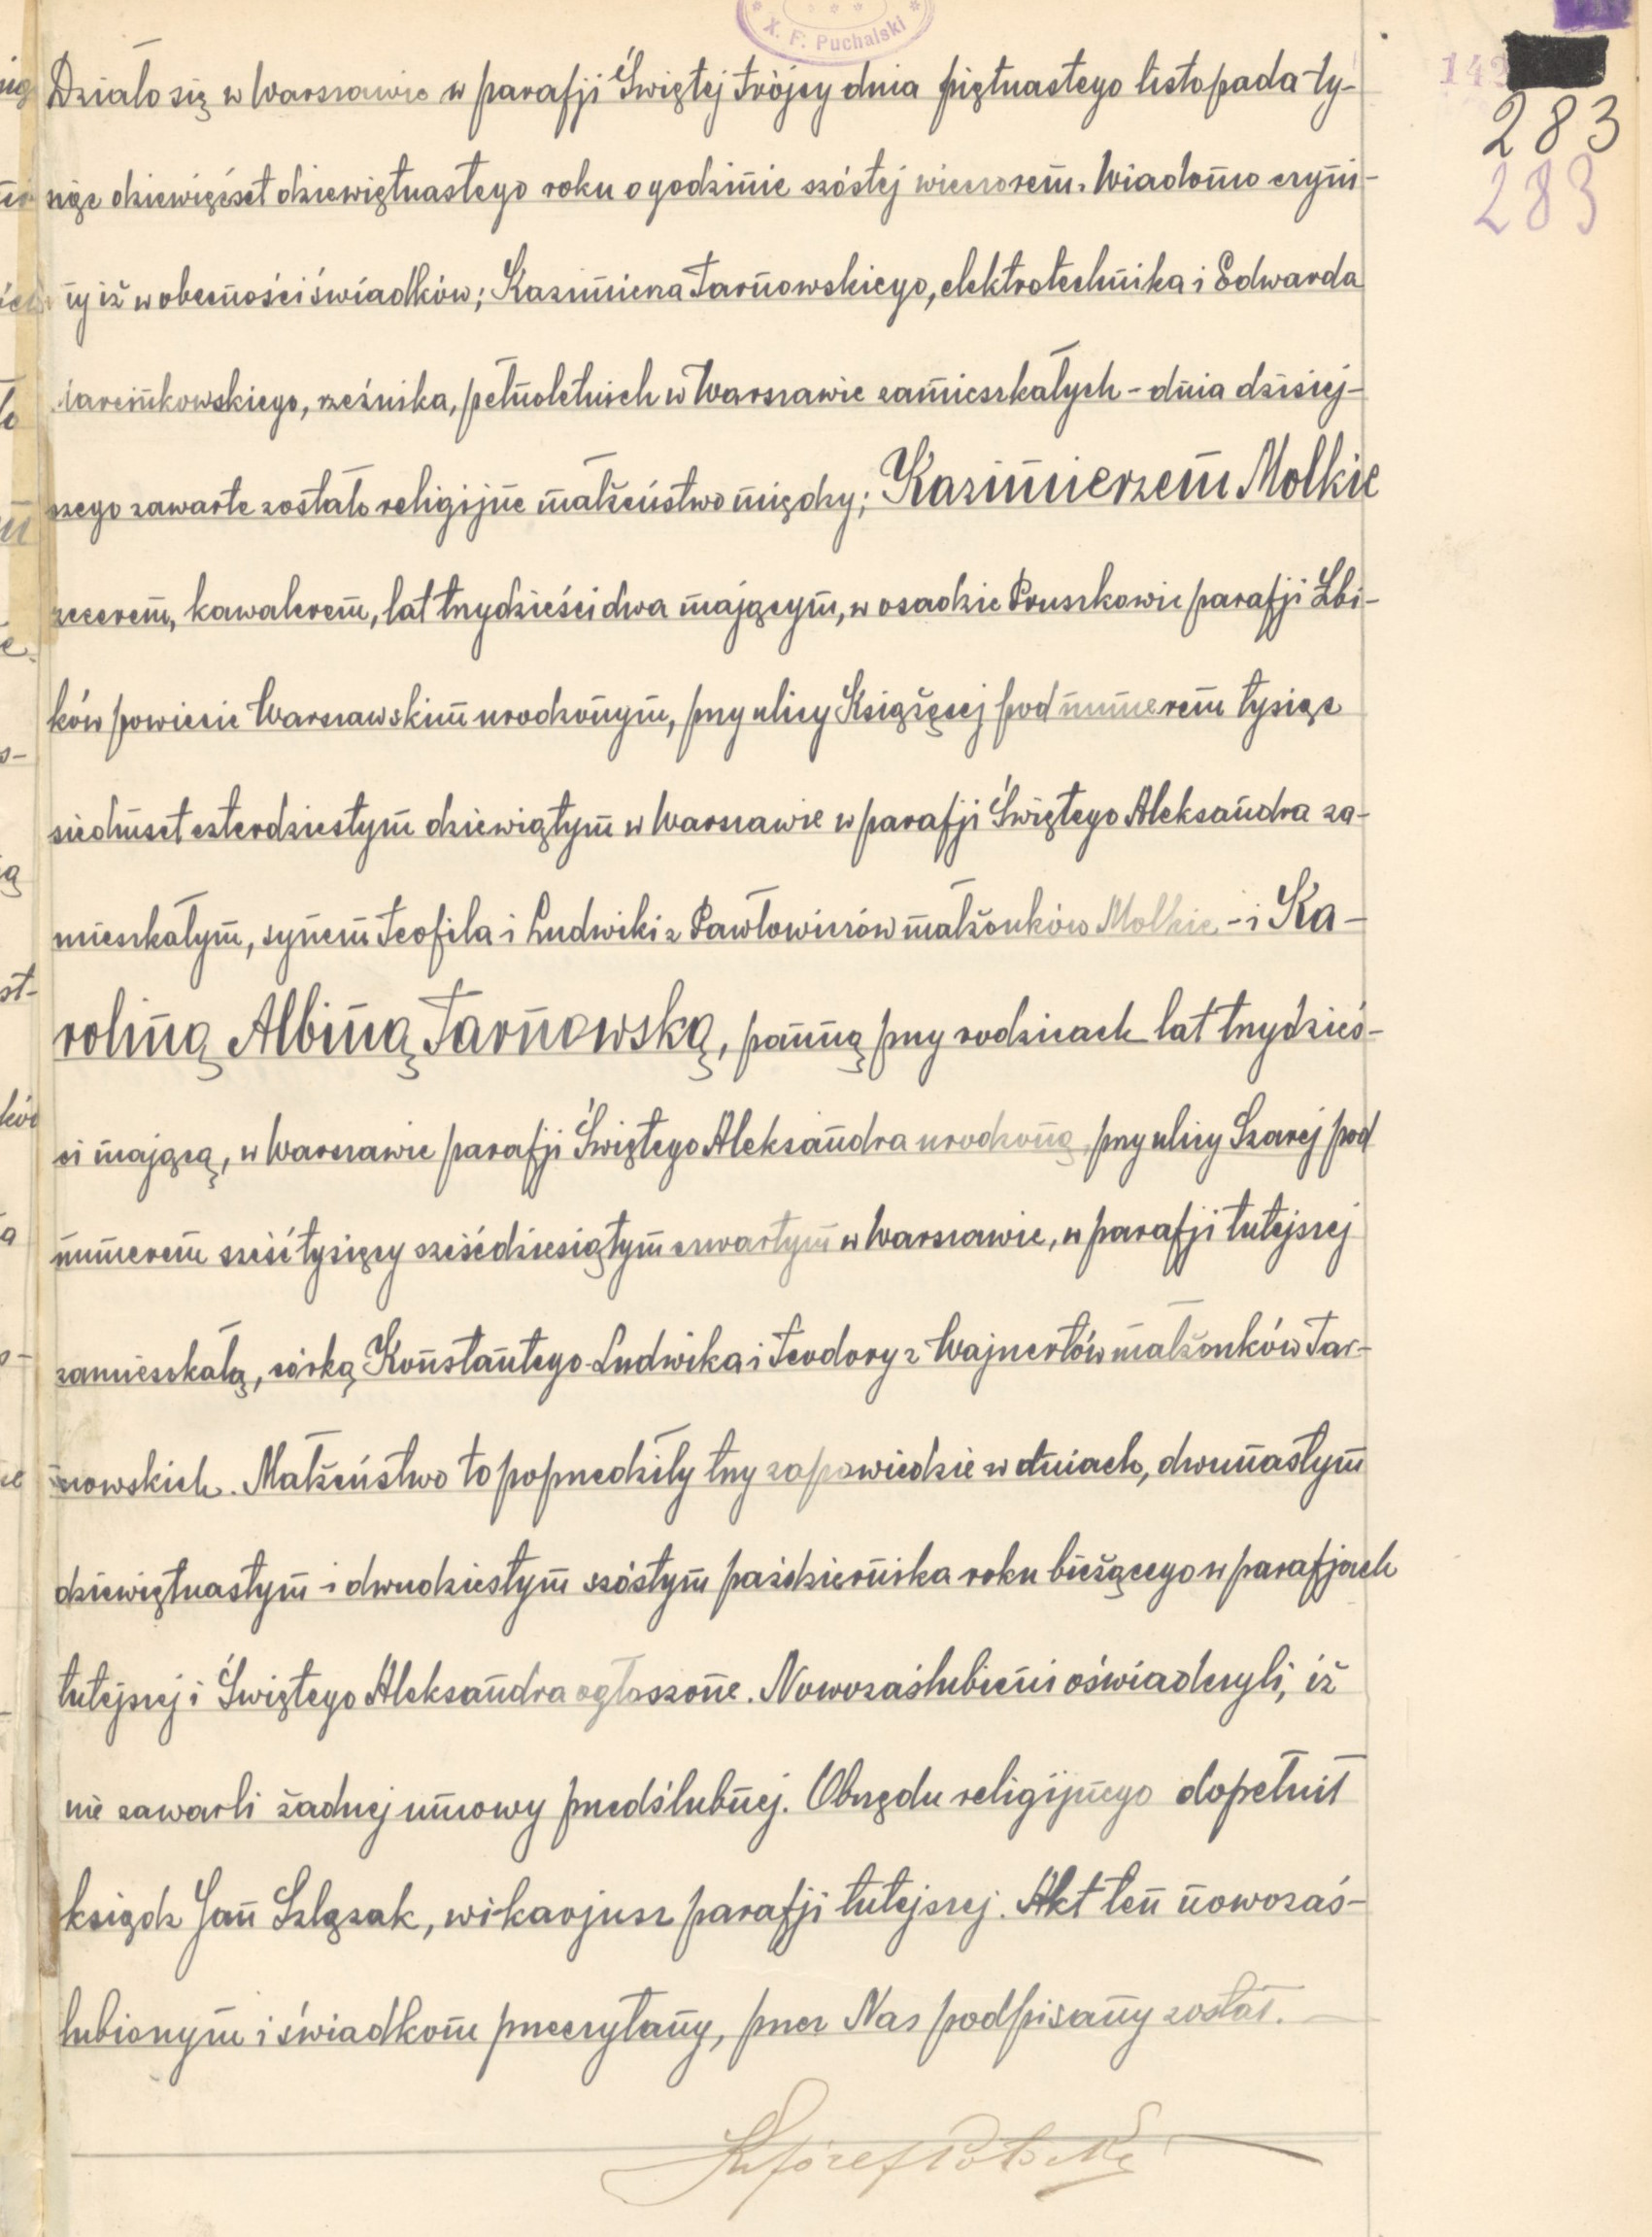 X. F. Puchalski
142
283
283
Działo się w Warszawie w parafji Świętej Trójcy dnia piętnastego listopada ty-
siąc dziewięćset dziewiętnastego roku o godzinie szóstej wieczorem. Wiadomo czyni-
my iż w obecności świadków; Kazimierza Tarnowskiego, elektrotechnika i Edwarda
Marcinkowskiego, rzeźnika, pełnoletnich w Warszawie zamieszkałych - dnia dzisiej-
szego zawarte zostało religijne małżeństwo między; Kazimierzem Molkie
zecerem, kawalerem, lat trzydzieści dwa mającym, w osadzie Pruszkowie parafji Żbi-
ków powiecie Warszawskim urodzonym, przy ulicy Książęcej pod numerem tysiąc
siedmset czterdziestym dziewiątym w Warszawie w parafji Świętego Aleksandra za-
mieszkałym, synem Teofila i Ludwiki z Pawłowiczów małżonków Molkie - i Ka-
roliną Albiną Tarnowską, panną przy rodzicach lat trzydzieś-
ci mającą, w Warszawie parafji Świętego Aleksandra urodzoną, przy ulicy Szarej pod
numerem sześć tysięcy sześćdziesiątym czwartym w Warszawie, w parafji tutejszej
zamieszkałą, córką Konstantego-Ludwika i Teodory z Wajnertów małżonków Tar-
nowskich. Małżeństwo to poprzedziły trzy zapowiedzie w dniach, dwunastym
dziewiętnastym i dwudziestym szóstym października roku bieżącego w parafjach
tutejszej i Świętego Aleksandra ogłoszone. Nowozaślubieni oświadczyli, iż
nie zawarli żadnej umowy przedślubnej. Obrzędu religijnego dopełnił
ksiądz Jan Szlązak, wikarjusz parafji tutejszej. Akt ten nowozaś-
lubionym i świadkom przeczytany, przez Nas podpisany został.